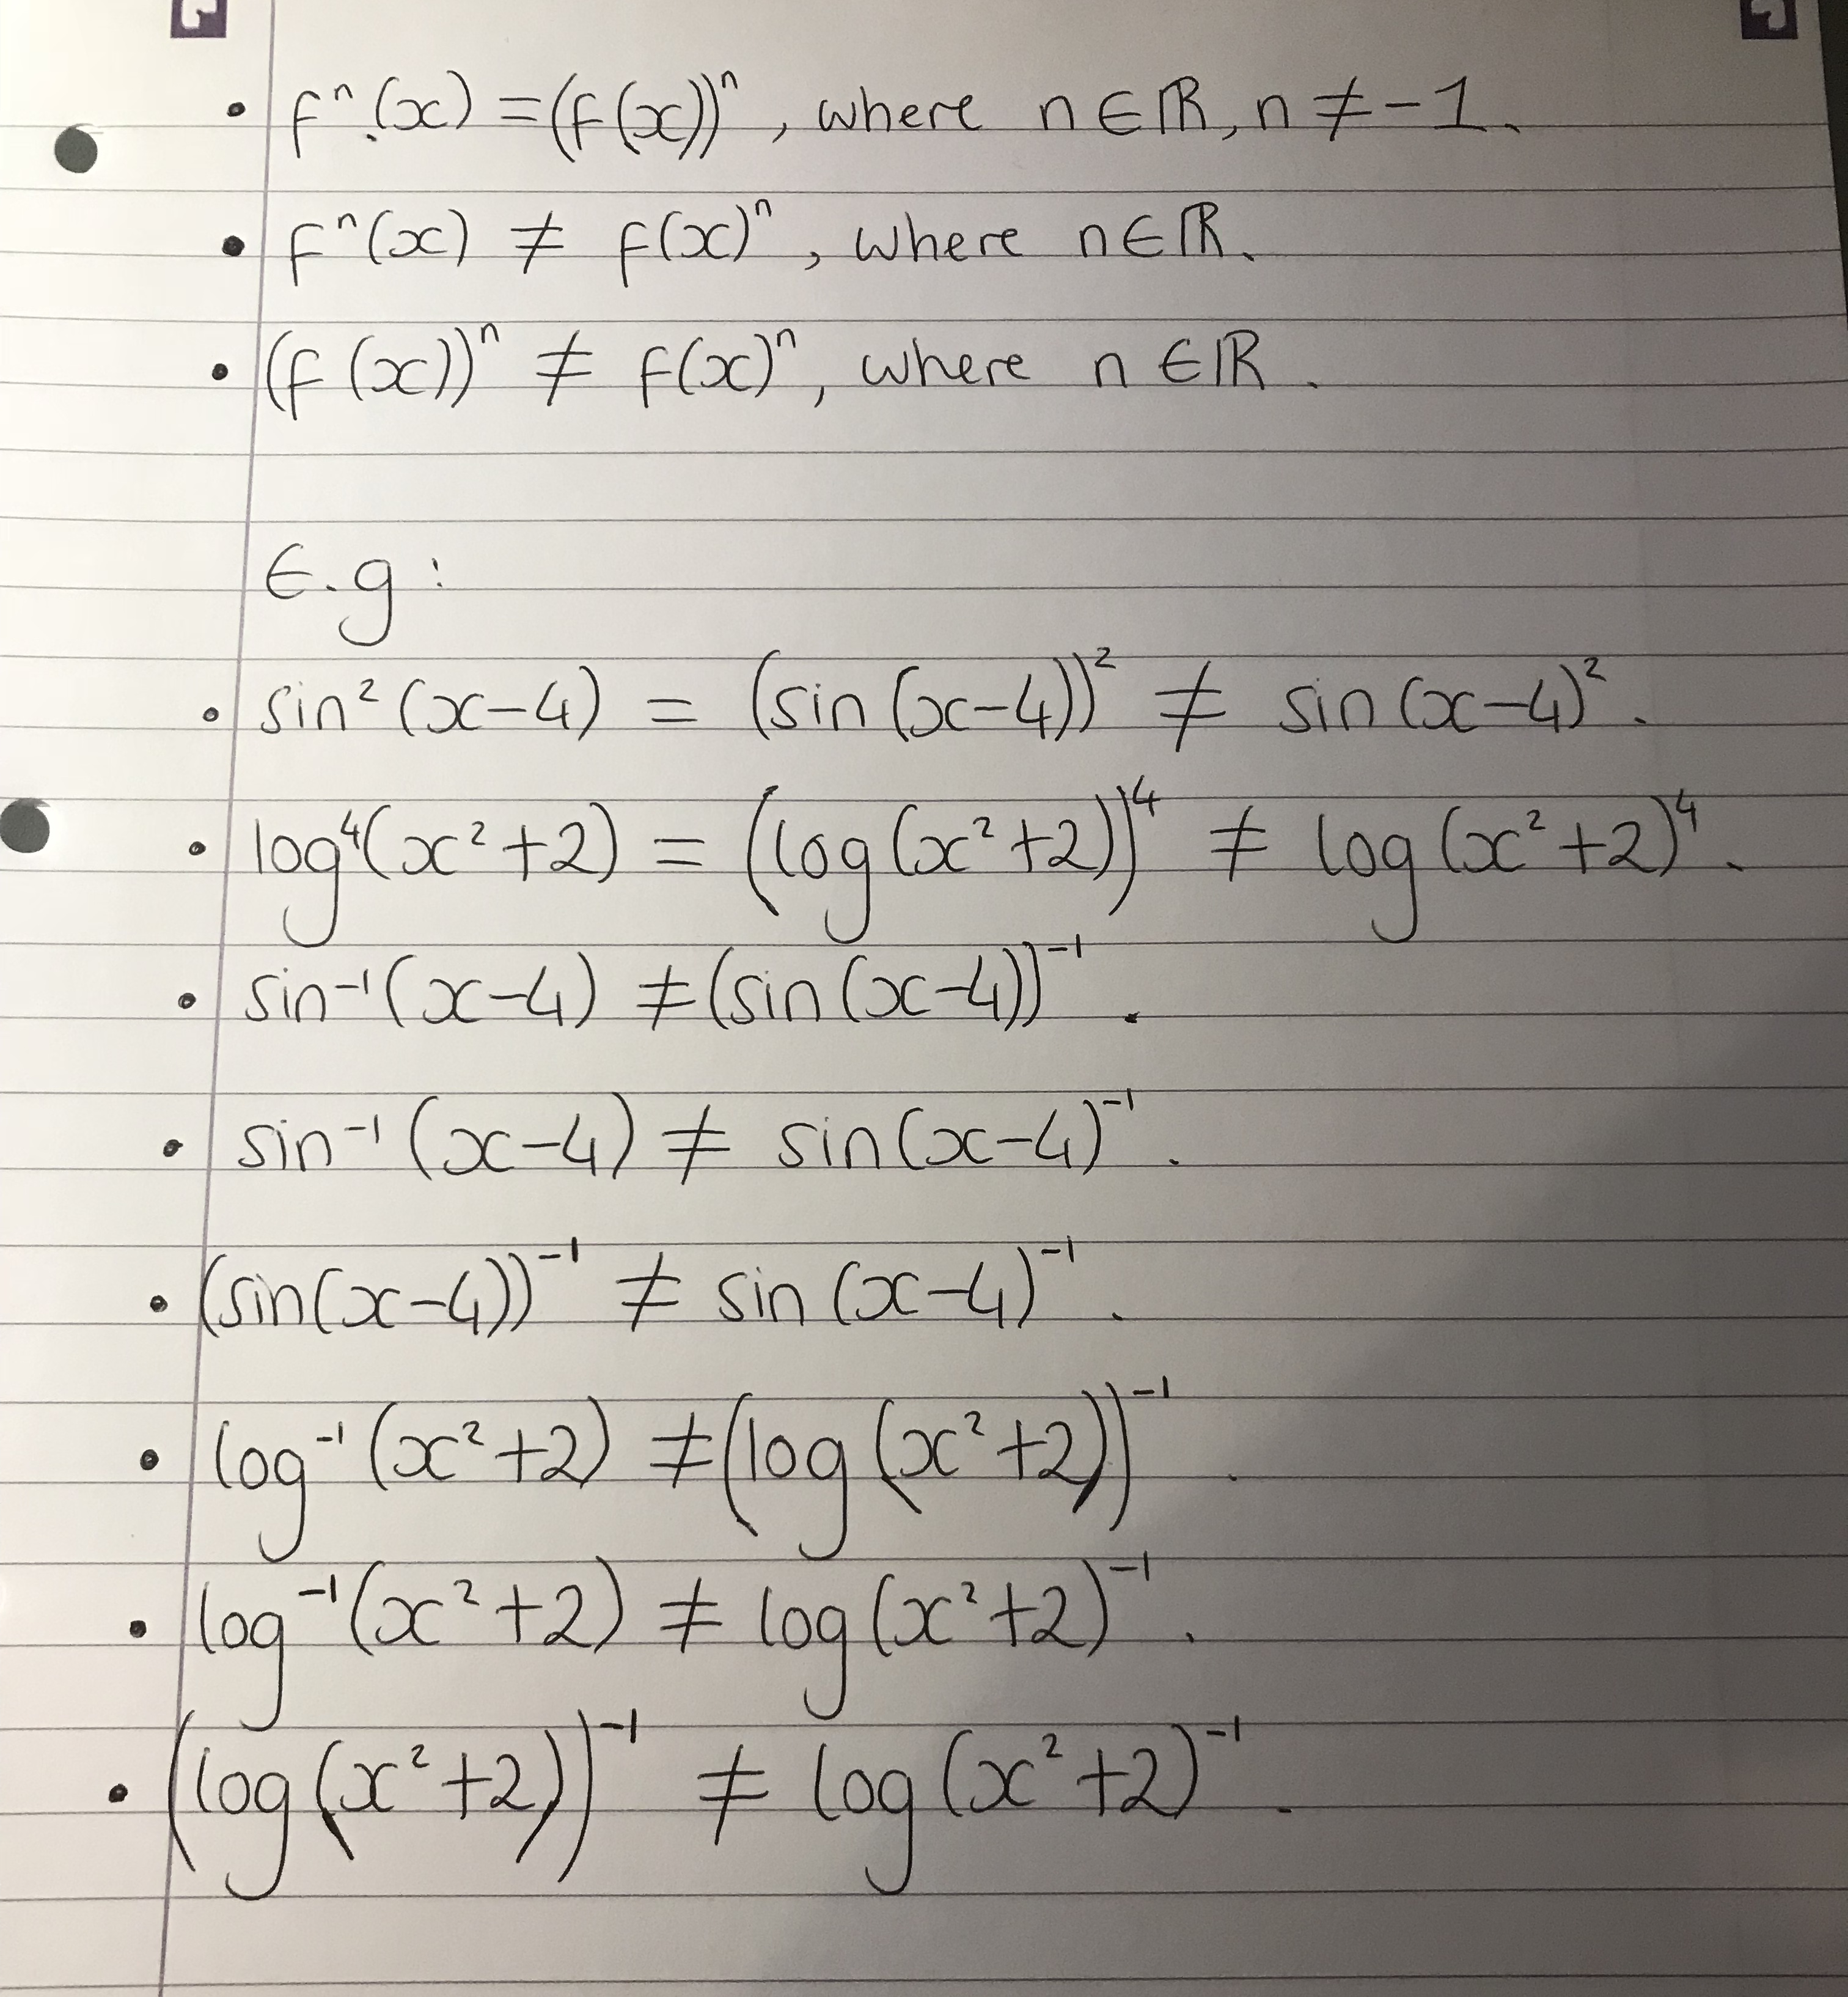 • fⁿ(x) = (f(x))ⁿ, where n∈ℝ, n ≠ -1.
• fⁿ(x) ≠ f(x)ⁿ, where n∈ℝ.
• (f(x))ⁿ ≠ f(x)ⁿ, where n∈ℝ.
E.g:
• sin²(x-4) = (sin(x-4))² ≠ sin(x-4)².
• log⁴(x²+2) = (log(x²+2))⁴ ≠ log(x²+2)⁴.
• sin⁻¹(x-4) ≠ (sin(x-4))⁻¹.
• sin⁻¹(x-4) ≠ sin(x-4)⁻¹.
• (sin(x-4))⁻¹ ≠ sin(x-4)⁻¹.
• log⁻¹(x²+2) ≠ (log(x²+2))⁻¹.
• log⁻¹(x²+2) ≠ log(x²+2)⁻¹.
• (log(x²+2))⁻¹ ≠ log(x²+2)⁻¹.